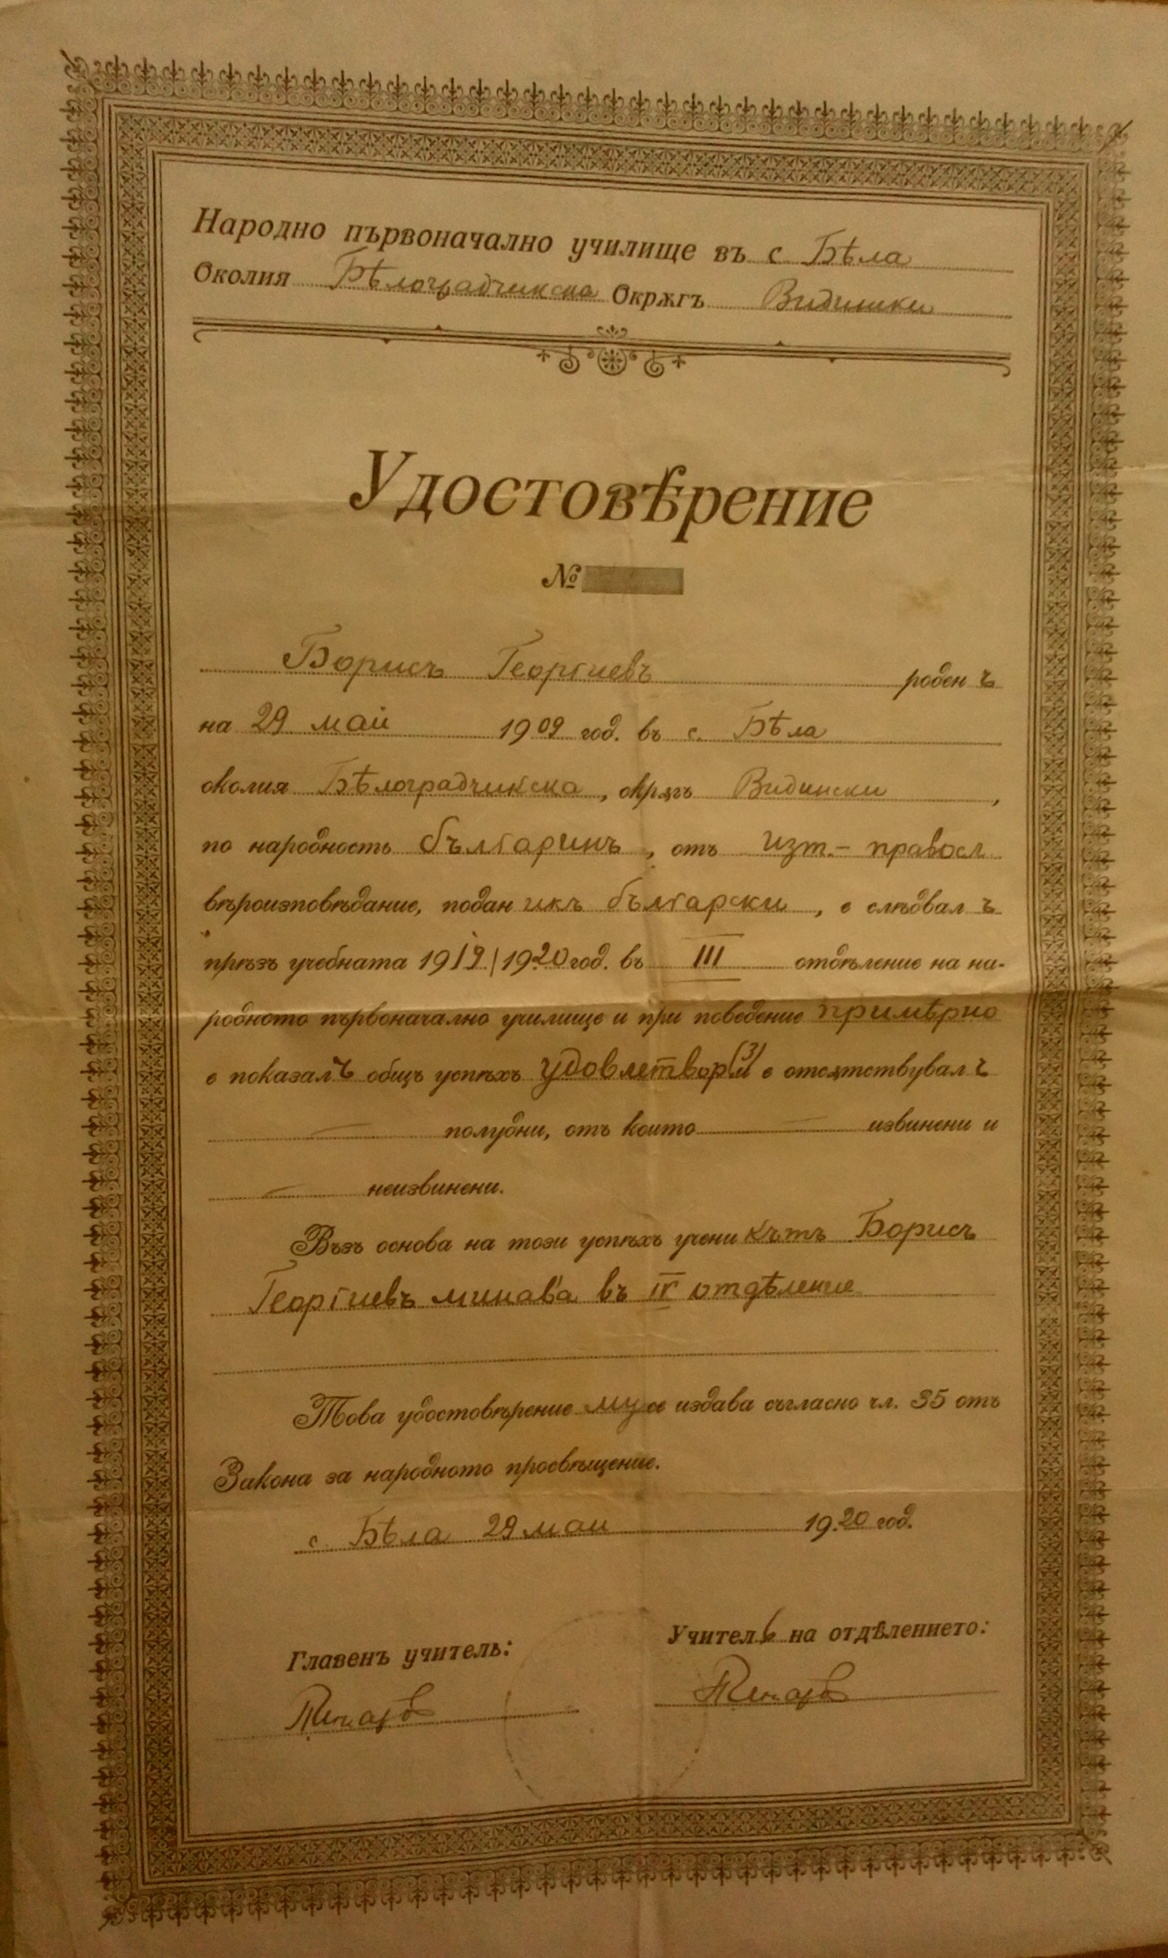 Народно първоначално училище въ с Бѣла
Околия Бѣлоградчикска Окрѫгъ Видински
Удостовѣрение
№
Борисъ Георгиевъ роденъ
на 29 май 1909 год. въ с. Бѣла
околия Бѣлоградчикска, окрѫгъ Видински,
по народность българинъ, отъ изт.- правосл
вѣроизповѣдание, поданикъ български, е слѣдвалъ
прѣзъ учебната 1919/1920 год. въ III отдѣление на на-
родното първоначално училище и при поведение примѣрно
е показалъ общъ успѣхъ удовлетвор(3) и е отсѫтствувалъ
— полудни, отъ които — извинени и
— неизвинени.
Възъ основа на този успѣхъ ученикътъ Борисъ
Георгиевъ минава въ IV отдѣление
Това удостовѣрение му се издава съгласно чл. 35 отъ
Закона за народното просвѣщение.
с. Бѣла 29 май 1920 год.
Главенъ учитель: Учитель на отдѣлението: